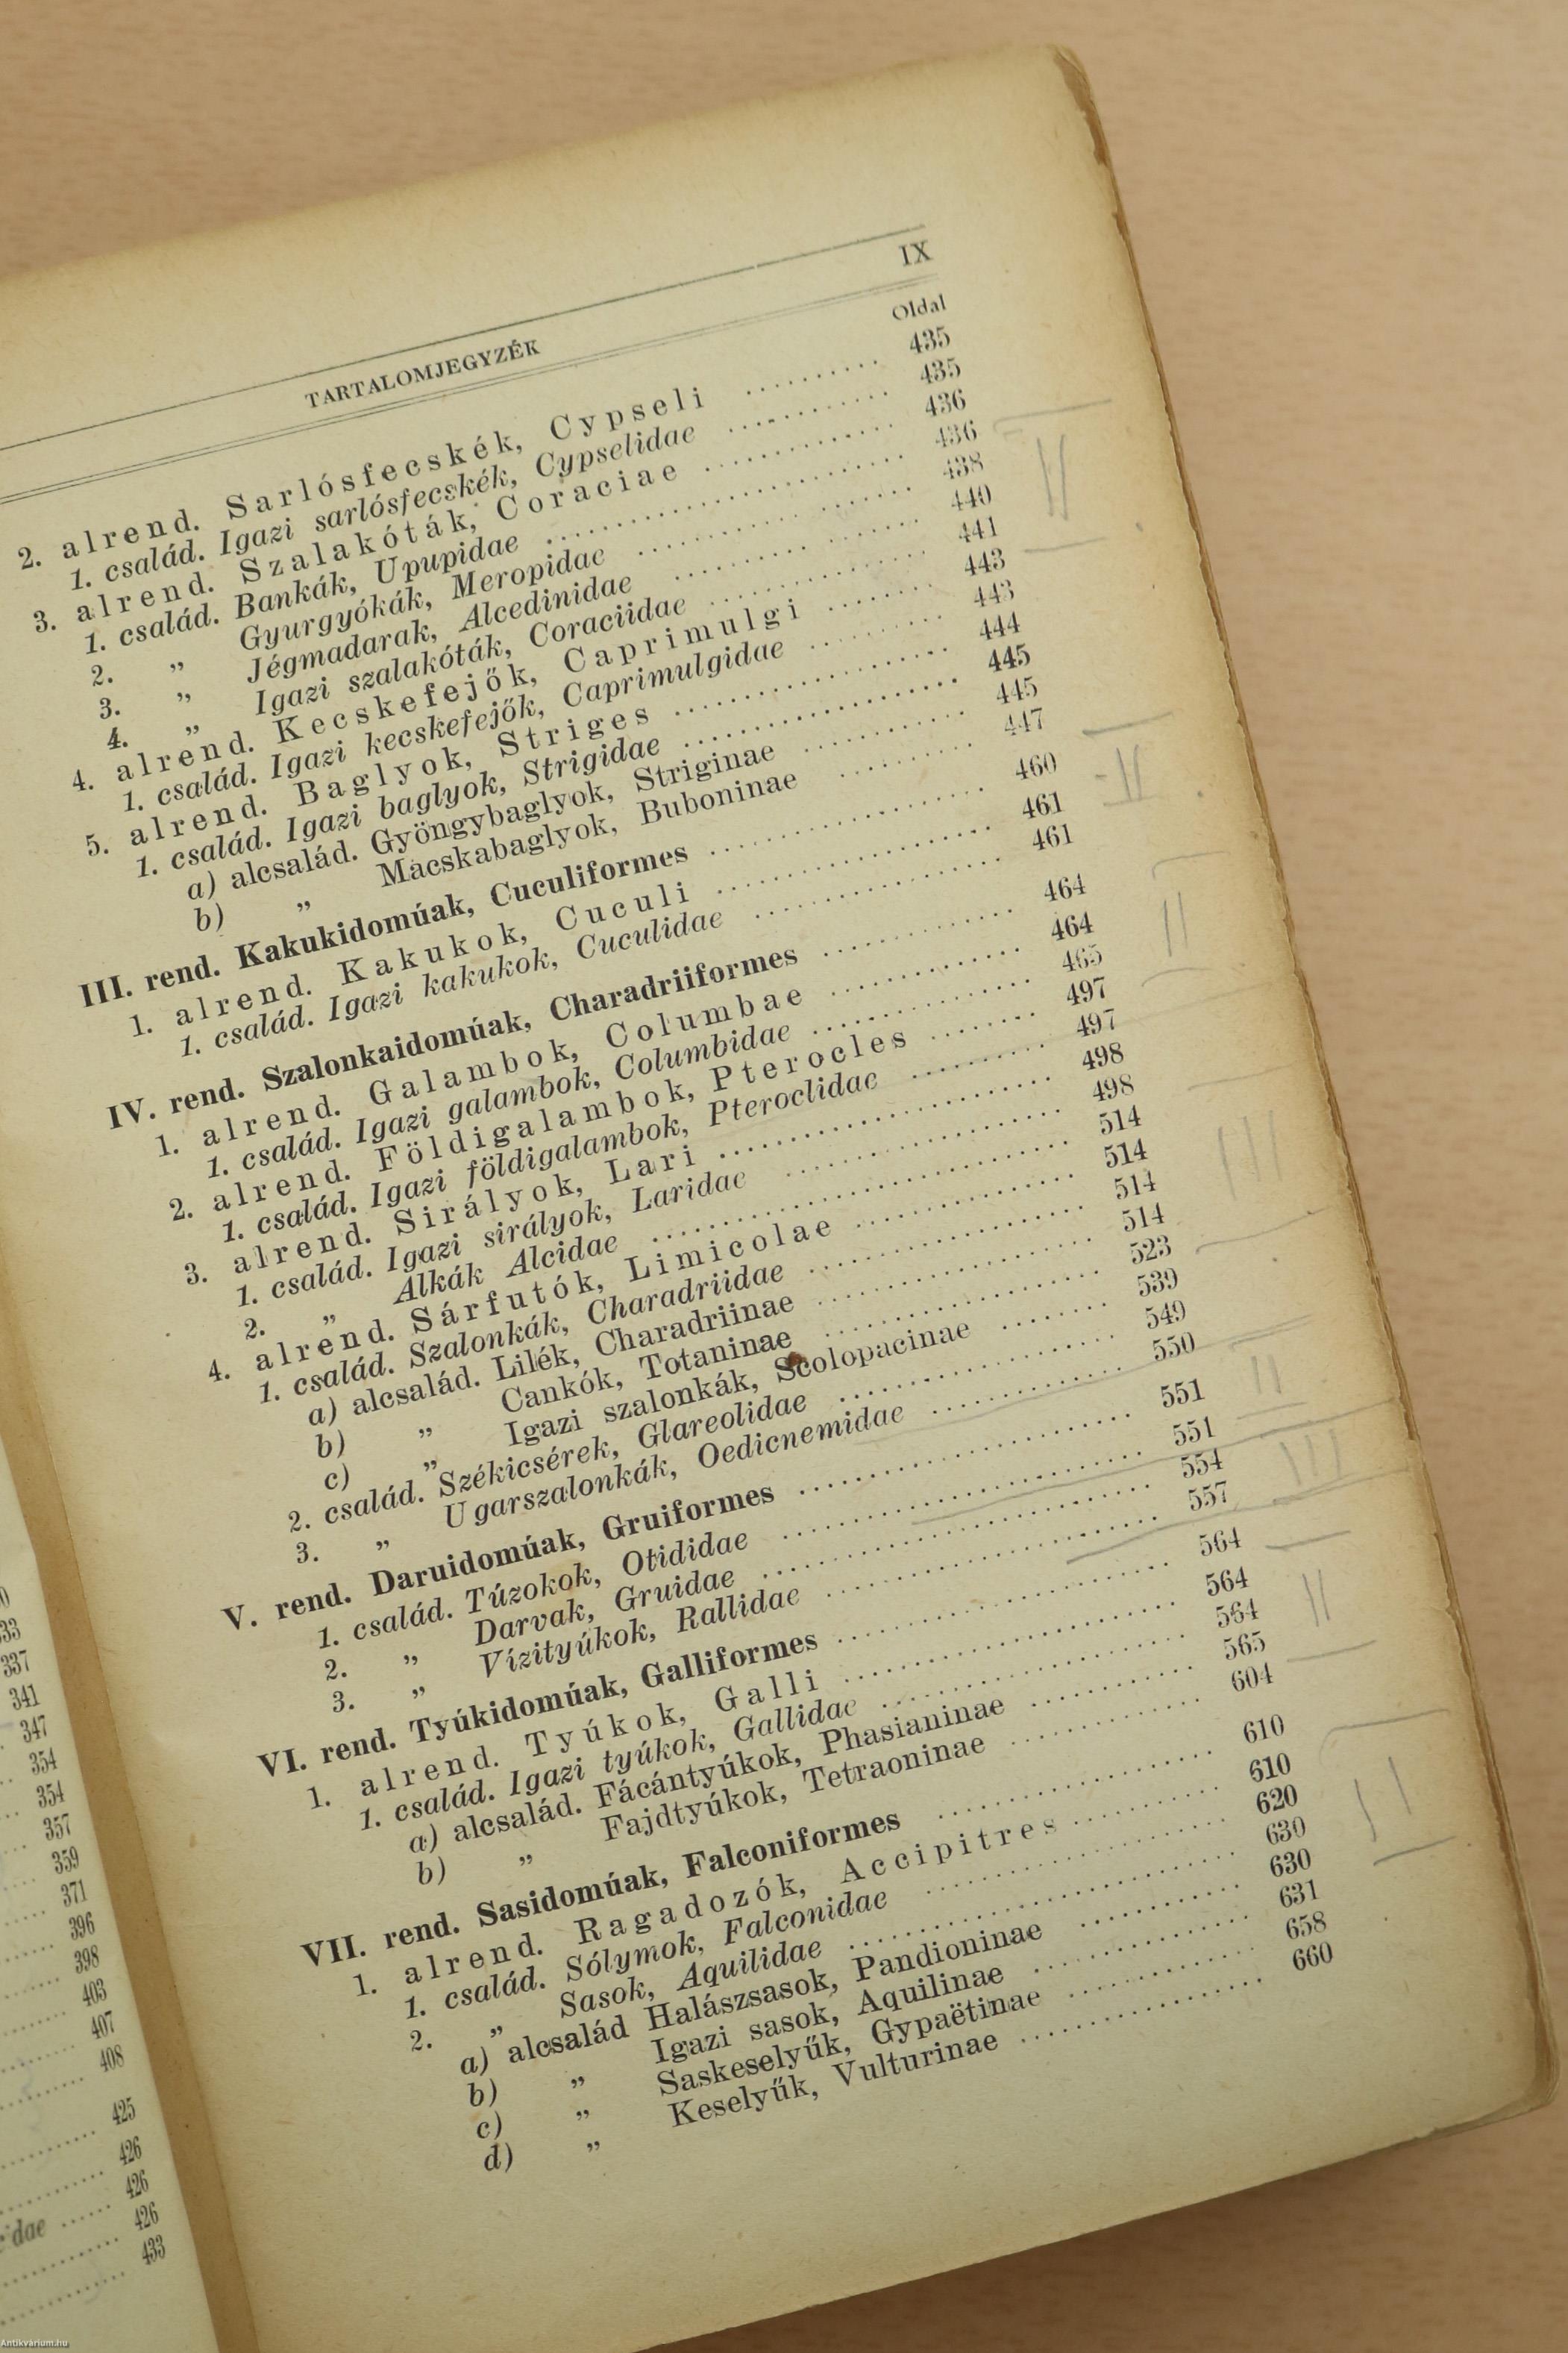 TARTALOMJEGYZÉK IX
Oldal
2. alrend. Sarlósfecskék, Cypseli .......... 435
1. család. Igazi sarlósfecskék, Cypselidae .......... 435
3. alrend. Szalakóták, Coraciae .......... 436
1. család. Bankák, Upupidae .......... 436
2. „ Gyurgyókák, Meropidae .......... 438
3. „ Jégmadarak, Alcedinidae .......... 440
4. „ Igazi szalakóták, Coraciidae .......... 441
4. alrend. Kecskefejők, Caprimulgi .......... 443
1. család. Igazi kecskefejők, Caprimulgidae .......... 443
5. alrend. Baglyok, Striges .......... 444
1. család. Igazi baglyok, Strigidae .......... 445
a) alcsalád. Gyöngybaglyok, Striginae .......... 445
b) „ Macskabaglyok, Buboninae .......... 447
III. rend. Kakukidomúak, Cuculiformes .......... 460
1. alrend. Kakukok, Cuculi .......... 461
1. család. Igazi kakukok, Cuculidae .......... 461
IV. rend. Szalonkaidomúak, Charadriiformes .......... 464
1. alrend. Galambok, Columbae .......... 464
1. család. Igazi galambok, Columbidae .......... 465
2. alrend. Földigalambok, Pterocles .......... 497
1. család. Igazi földigalambok, Pteroclidae .......... 497
3. alrend. Sirályok, Lari .......... 498
1. család. Igazi sirályok, Laridae .......... 498
2. „ Alkák Alcidae .......... 514
4. alrend. Sárfutók, Limicolae .......... 514
1. család. Szalonkák, Charadriidae .......... 514
a) alcsalád. Lilék, Charadriinae .......... 514
b) „ Cankók, Totaninae .......... 523
c) „ Igazi szalonkák, Scolopacinae .......... 539
2. család. Székicsérek, Glareolidae .......... 549
3. „ Ugarszalonkák, Oedicnemidae .......... 550
V. rend. Daruidomúak, Gruiformes .......... 551
1. család. Túzokok, Otididae .......... 551
2. „ Darvak, Gruidae .......... 554
3. „ Vízityúkok, Rallidae .......... 557
VI. rend. Tyúkidomúak, Galliformes .......... 564
1. alrend. Tyúkok, Galli .......... 564
1. család. Igazi tyúkok, Gallidae .......... 564
a) alcsalád. Fácántyúkok, Phasianinae .......... 565
b) „ Fajdtyúkok, Tetraoninae .......... 604
VII. rend. Sasidomúak, Falconiformes .......... 610
1. alrend. Ragadozók, Accipitres .......... 610
1. család. Sólymok, Falconidae .......... 620
2. „ Sasok, Aquilidae .......... 630
a) alcsalád Halászsasok, Pandioninae .......... 630
b) „ Igazi sasok, Aquilinae .......... 631
c) „ Saskeselyűk, Gypaëtinae .......... 658
d) „ Keselyűk, Vulturinae .......... 660
337
341
347
354
354
357
359
371
396
398
403
407
408
425
426
dae ...... 426
426
433
Antikvárium.hu